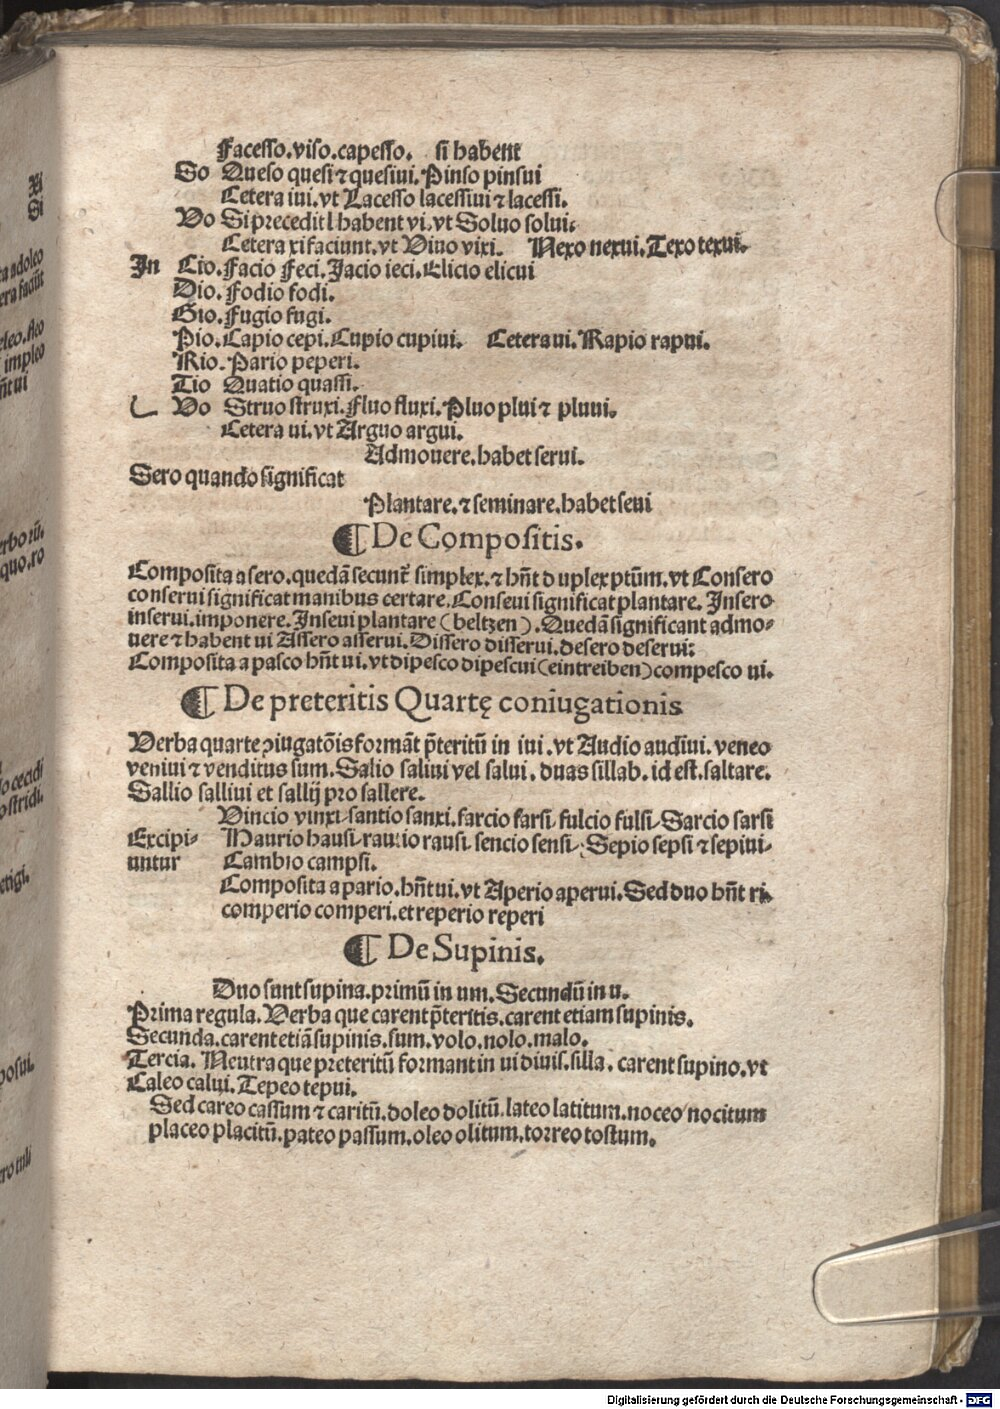 Facesso.viso.capesso. si habent
So Queso quesi ⁊ quesiui. Pinso pinsui
Cetera iui.vt Lacesso lacessiui ⁊ lacessi.
Uo Si precedit l habent vi.vt Soluo solui.
Cetera xi faciunt.vt Viuo vixi. Nexo nexui. Texo texui.
In Cio. Facio feci. Iacio ieci. Elicio elicui
Dio. Fodio fodi.
Gio. Fugio fugi.
Pio. Capio cepi. Cupio cupiui. Cetera ui. Rapio rapui.
Rio. Pario peperi.
Tio Quatio quassi.
Uo Struo struxi. Fluo fluxi. Pluo plui ⁊ pluui.
Cetera ui.vt Arguo argui.
Admouere.habet serui.
Sero quando significat
Plantare.⁊ seminare.habet seui
¶ De Compositis.
Composita a sero.quedã secunt̃ simplex.⁊ hñt duplex ptũm.vt Consero
conserui significat manibus certare. Conseui significat plantare. Insero
inserui.imponere. Inseui plantare (beltzen). Quedã significant admo⸗
uere ⁊ habent ui Assero asserui. Dissero disserui.desero deserui:
Composita a pasco hñt ui.vt dipesco dipescui (eintreiben) compesco ui.
¶ De preteritis Quartę coniugationis
Verba quarte ꝯiugatõis formãt p̃teritũ in iui.vt Audio audiui.veneo
veniui ⁊ venditus sum. Salio saliui vel salui.duas sillab.id est.saltare.
Sallio salliui et sallij pro sallere.
Vincio vinxi.santio sanxi.farcio farsi.fulcio fulsi. Sarcio sarsi
Excipi⸗ Haurio hausi.raucio rausi.sencio sensi. Sepio sepsi ⁊ sepiui.
untur Cambio campsi.
Composita a pario.hñt ui.vt Aperio aperui. Sed duo hñt ri.
comperio comperi.et reperio reperi
¶ De Supinis.
Duo sunt supina.primũ in um. Secundũ in u.
Prima regula. Verba que carent p̃teritis.carent etiam supinis.
Secunda.carent etiã supinis.sum.volo.nolo.malo.
Tercia. Neutra que preteritũ formant in ui diuis.silla.carent supino.vt
Caleo calui. Tepeo tepui.
Sed careo cassum ⁊ caritũ.doleo dolitũ.lateo latitum.noceo nocitum
placeo placitũ.pateo passum.oleo olitum.torreo tostum.
Digitalisierung gefördert durch die Deutsche Forschungsgemeinschaft - DFG